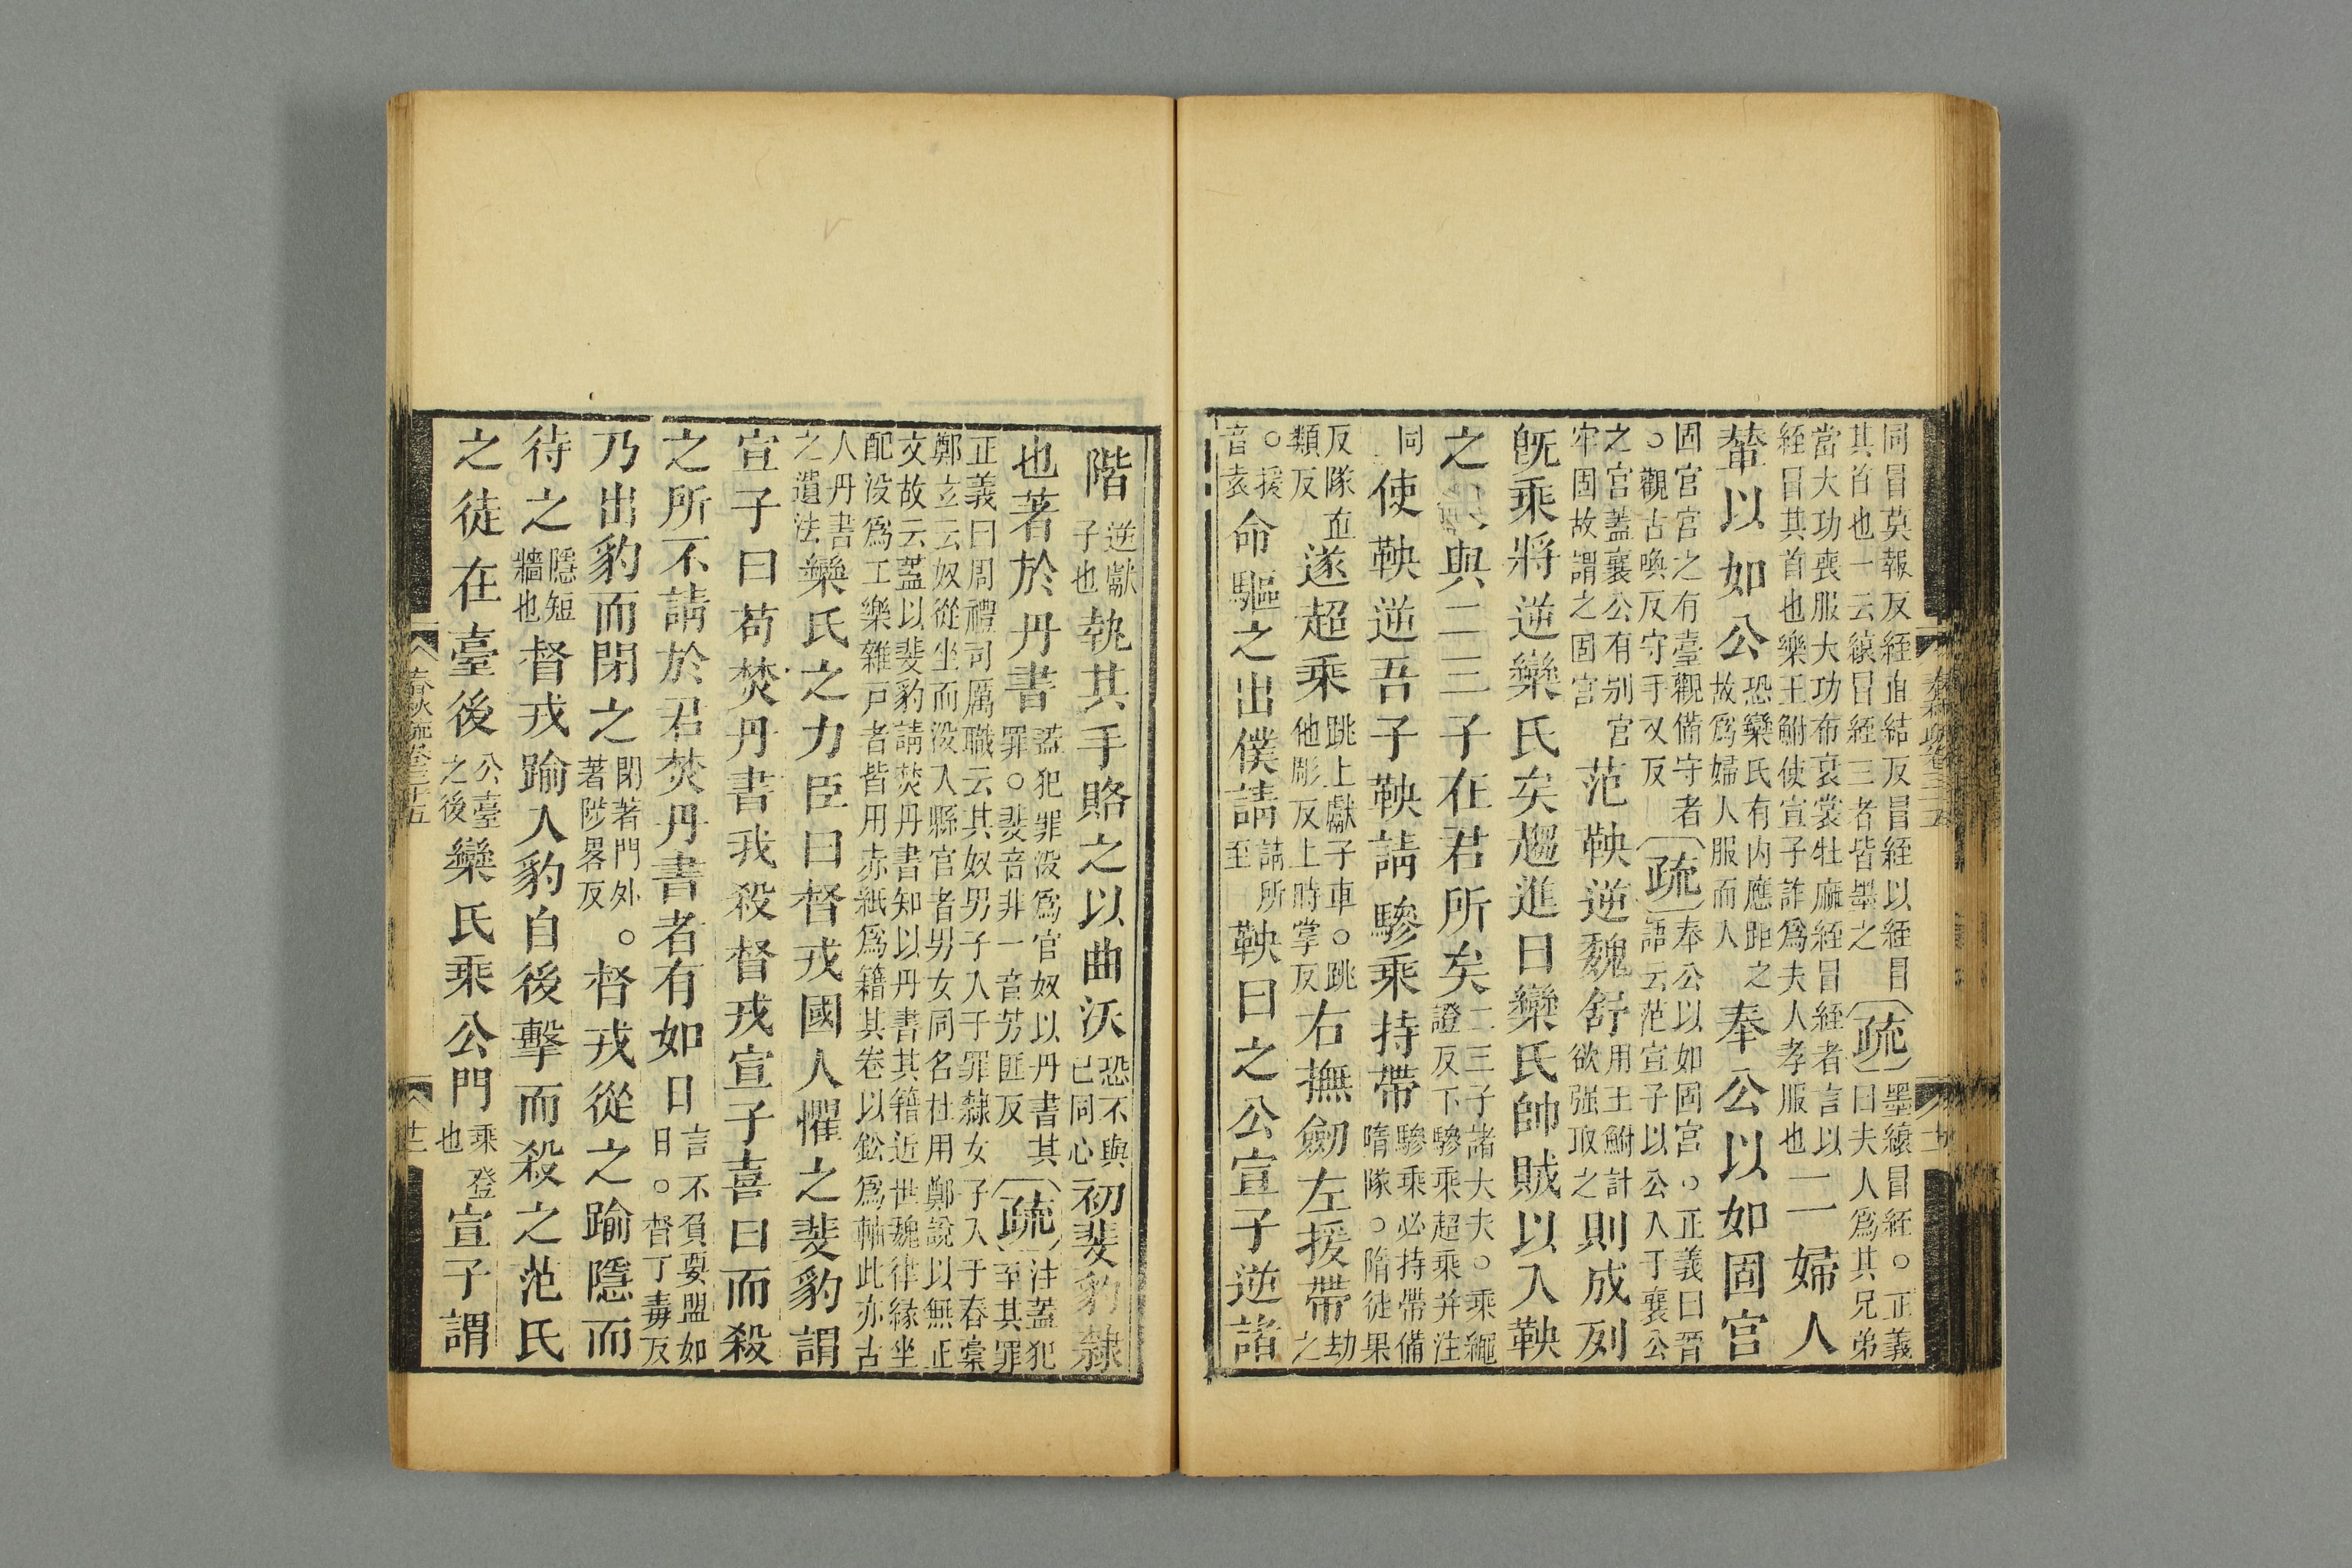 同冒莫報反絰直結反冒絰以絰冒
其首也一云縗冒絰三者皆墨之
疏
墨縗冒絰。正義
曰夫人爲其兄弟
當大功喪服大功布衰裳牡麻絰冒絰者言以
絰冒其首也樂王鮒使宣子詐爲夫人孝服也
二婦人
輦以如公
恐欒氏有内應距之
故爲婦人服而入
奉公以如固宮
固宮宮之有臺觀備守者
。觀古喚反守手又反
疏
奉公以如固宮。正義曰晉
語云范宣子以公入于襄公
之宮蓋襄公有别宮
牢固故謂之固宮
范鞅逆魏舒
用王鮒計
欲强取之
則成列
旣乘將逆欒氏矣趨進曰欒氏帥賊以入鞅
之
與二三子在君所矣
二三子諸大夫。乘繩
證反下驂乘超乘并注
同
使鞅逆吾子鞅請驂乘持帶
驂乘必持帶備
隋隊。隋徒果
反隊直
類反
遂超乘
跳上獻子車。跳
他彫反上時掌反
右撫劒左援帶
劫
之
。援
音袁
命驅之出僕請
請所
至
鞅曰之公宣子逆諸
階
逆獻
子也
執其手賂之以曲沃
恐不與
已同心
初斐豹隸
也著於丹書
蓋犯罪没爲官奴以丹書其
罪。斐音非一音芳匪反
疏
注蓋犯
至其罪
正義曰周禮司厲職云其奴男子入于罪隸女子入于舂稾
鄭玄云奴從坐而没入縣官者男女同名杜用鄭說以無正
文故云蓋以斐豹請焚丹書知以丹書其籍近世魏律緣坐
配没爲工樂雜戸者皆用赤紙爲籍其卷以鈆爲軸此亦古
人丹書
之遺法
欒氏之力臣曰督戎國人懼之斐豹謂
宣子曰苟焚丹書我殺督戎宣子喜曰而殺
之所不請於君焚丹書者有如日
言不負要盟如
日。督丁毒反
乃出豹而閉之
閉著門外。
著陟畧反
督戎從之踰隱而
待之
隱短
牆也
督戎踰入豹自後擊而殺之范氏
之徒在臺後
公臺
之後
欒氏乘公門
乘登
也
宣子謂
春秋疏卷三十五